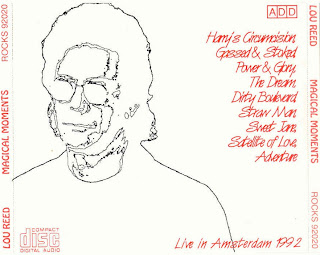 LOU REED MAGICAL MOMENTS ROCKS 92020
ADD
Harry's Circumcision,
Gassed & Stoked,
Power & Glory,
The Dream,
Dirty Boulevard,
Straw Man,
Sweet Jane,
Satellite of Love,
Adventure
COMPACT
disc
DIGITAL AUDIO
Live in Amsterdam 1992
LOU REED MAGICAL MOMENTS ROCKS 92020